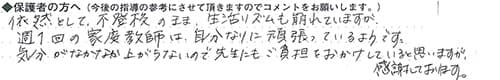 ◆保護者の方へ(今後の指導の参考にさせて頂きますのでコメントをお願いします。)
依然として、不登校のまま、生活リズムも崩れていますが、
週1回の家庭教師は、自分なりに頑張っているようです。
気分がなかなか上がらないので先生にもご負担をおかけしていると思いますが、
感謝しております。